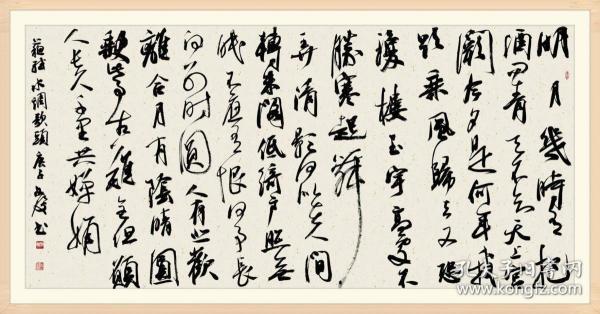 明月幾時有把
酒問青天不知天上宫
闕今夕是何年我
欲乘風歸去又恐
瓊樓玉宇高處不
勝寒起舞
弄清影何似在人間
轉朱閣低綺户照無
眠不應有恨何事長
向别時圓人有悲歡
離合月有陰晴圓
缺此事古難全但願
人長久千里共嬋娟
蘇軾水調歌頭庚子書
孔夫子旧书网
www.kongfz.com